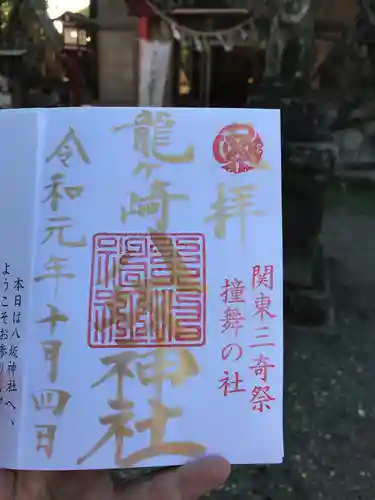 拝
関東三奇祭
撞舞の社
龍ヶ崎
神社
令和元年十月四日
本日は八坂神社へ、
ようこそお参り